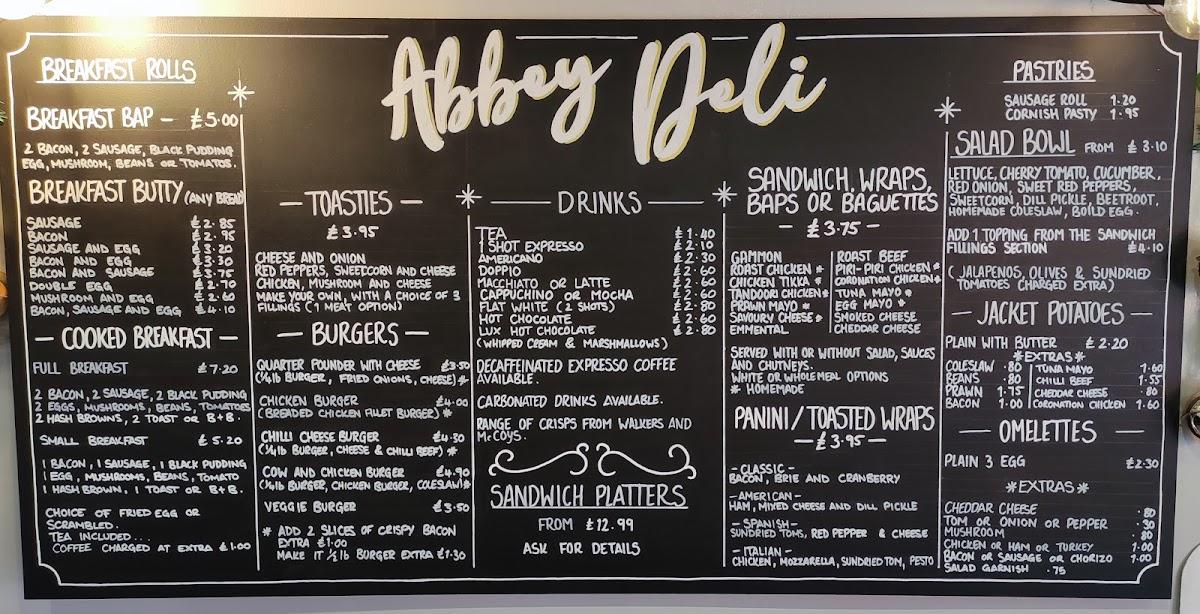 Abbey Deli
BREAKFAST ROLLS
BREAKFAST BAP - £5.00
2 BACON, 2 SAUSAGE, BLACK PUDDING
EGG, MUSHROOM, BEANS OR TOMATOS.
BREAKFAST BUTTY (ANY BREAD
SAUSAGE £2.85
BACON £2.95
SAUSAGE AND EGG £3.20
BACON AND EGG £3.30
BACON AND SAUSAGE £3.75
DOUBLE EGG £2.70
MUSHROOM AND EGG £2.60
BACON, SAUSAGE AND EGG £4.10
COOKED BREAKFAST -
FULL BREAKFAST £7.20
2 BACON, 2 SAUSAGE, 2 BLACK PUDDING
2 EGGS, MUSHROOMS, BEANS, TOMATOES
2 HASH BROWNS, 2 TOAST OR B+B.
SMALL BREAKFAST £5.20
1 BACON, 1 SAUSAGE, 1 BLACK PUDDING
1 EGG, MUSHROOMS, BEANS, TOMATO
1 HASH BROWN, 1 TOAST OR B+B.
CHOICE OF FRIED EGG OR
SCRAMBLED.
TEA INCLUDED...
COFFEE CHARGED AT EXTRA £1.00
- TOASTIES -
£3.95
CHEESE AND ONION
RED PEPPERS, SWEETCORN AND CHEESE
CHICKEN, MUSHROOM AND CHEESE
MAKE YOUR OWN, WITH A CHOICE OF 3
FILLINGS (1 MEAT OPTION)
- BURGERS -
QUARTER POUNDER WITH CHEESE £3.50
(1/4lb BURGER, FRIED ONIONS, CHEESE) *
CHICKEN BURGER £4.00
(BREADED CHICKEN FILLET BURGER) *
CHILLI CHEESE BURGER £4.50
(1/4lb BURGER, CHEESE & CHILLI BEEF) *
COW AND CHICKEN BURGER £4.90
(1/4lb BURGER, CHICKEN BURGER, COLESLAW) *
VEGGIE BURGER £3.50
* ADD 2 SLICES OF CRISPY BACON
EXTRA £1.00
MAKE IT 1/2 lb BURGER EXTRA £1.30
DRINKS
TEA £1.40
1 SHOT EXPRESSO £2.10
AMERICANO £2.30
DOPPIO £2.60
MACCHIATO OR LATTE £2.60
CAPPUCHINO OR MOCHA £2.60
FLAT WHITE (2 SHOTS) £2.80
HOT CHOCOLATE £2.60
LUX HOT CHOCOLATE £2.80
(WHIPPED CREAM & MARSHMALLOWS)
DECAFFEINATED EXPRESSO COFFEE
AVAILABLE.
CARBONATED DRINKS AVAILABLE.
RANGE OF CRISPS FROM WALKERS AND
McCOYS.
SANDWICH PLATTERS
FROM £12.99
ASK FOR DETAILS
SANDWICH, WRAPS,
BAPS OR BAGUETTES
- £3.75 -
GAMMON
ROAST CHICKEN *
CHICKEN TIKKA *
TANDOORI CHICKEN *
PRAWN MAYO *
SAVOURY CHEESE *
EMMENTAL
ROAST BEEF
PIRI-PIRI CHICKEN *
CORONATION CHICKEN *
TUNA MAYO *
EGG MAYO *
SMOKED CHEESE
CHEDDAR CHEESE
SERVED WITH OR WITHOUT SALAD, SAUCES
AND CHUTNEYS.
WHITE OR WHOLEMEAL OPTIONS
* HOMEMADE
PANINI/TOASTED WRAPS
- £3.95 -
- CLASSIC -
BACON, BRIE AND CRANBERRY
- AMERICAN -
HAM, MIXED CHEESE AND DILL PICKLE
- SPANISH -
SUNDRIED TOMS, RED PEPPER & CHEESE
- ITALIAN -
CHICKEN, MOZZARELLA, SUNDRIED TOM, PESTO
PASTRIES
SAUSAGE ROLL 1.20
CORNISH PASTY 1.95
SALAD BOWL FROM £3.10
LETTUCE, CHERRY TOMATO, CUCUMBER,
RED ONION, SWEET RED PEPPERS,
SWEETCORN, DILL PICKLE, BEETROOT,
HOMEMADE COLESLAW, BOILD EGG.
ADD 1 TOPPING FROM THE SANDWICH
FILLINGS SECTION £4.10
(JALAPENOS, OLIVES & SUNDRIED
TOMATOES CHARGED EXTRA)
- JACKET POTATOES -
PLAIN WITH BUTTER £2.20
*EXTRAS*
COLESLAW .80
BEANS .80
PRAWN 1.75
BACON 1.00
TUNA MAYO 1.60
CHILLI BEEF 1.55
CHEDDAR CHEESE .80
CORONATION CHICKEN 1.60
- OMELETTES -
PLAIN 3 EGG £2.30
*EXTRAS*
CHEDDAR CHEESE .80
TOM OR ONION OR PEPPER .30
MUSHROOM .80
CHICKEN OR HAM OR TURKEY 1.00
BACON OR SAUSAGE OR CHORIZO 1.00
SALAD GARNISH .75